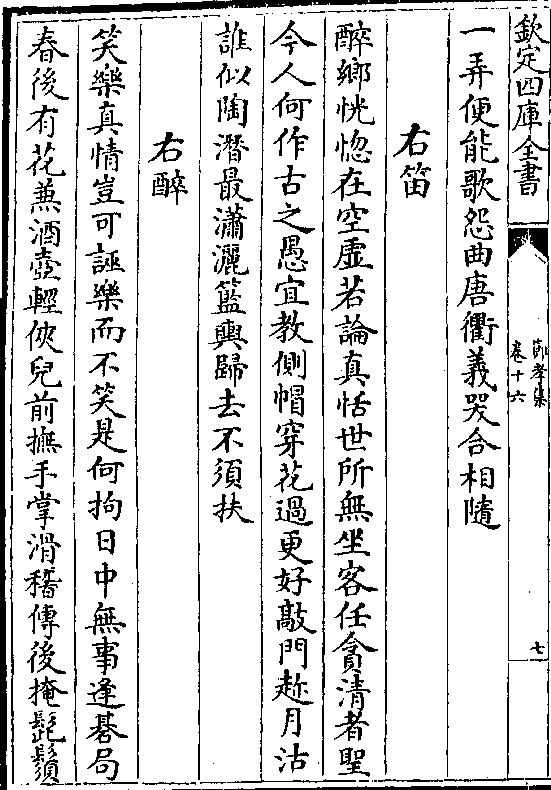 欽定四庫全書
節孝集
卷十六
七
一弄便能歌怨曲唐衢義哭合相隨
右笛
醉鄉恍惚在空虛若論真恬世所無坐客任貪清者聖
今人何作古之愚宜教側帽穿花過更好敲門趂月沽
誰似陶潛最瀟灑籃輿歸去不須扶
右醉
笑樂真情豈可誣樂而不笑是何拘日中無事逢棊局
春後有花兼酒壺輕俠兒前撫手掌滑稽傳後掩髭鬚